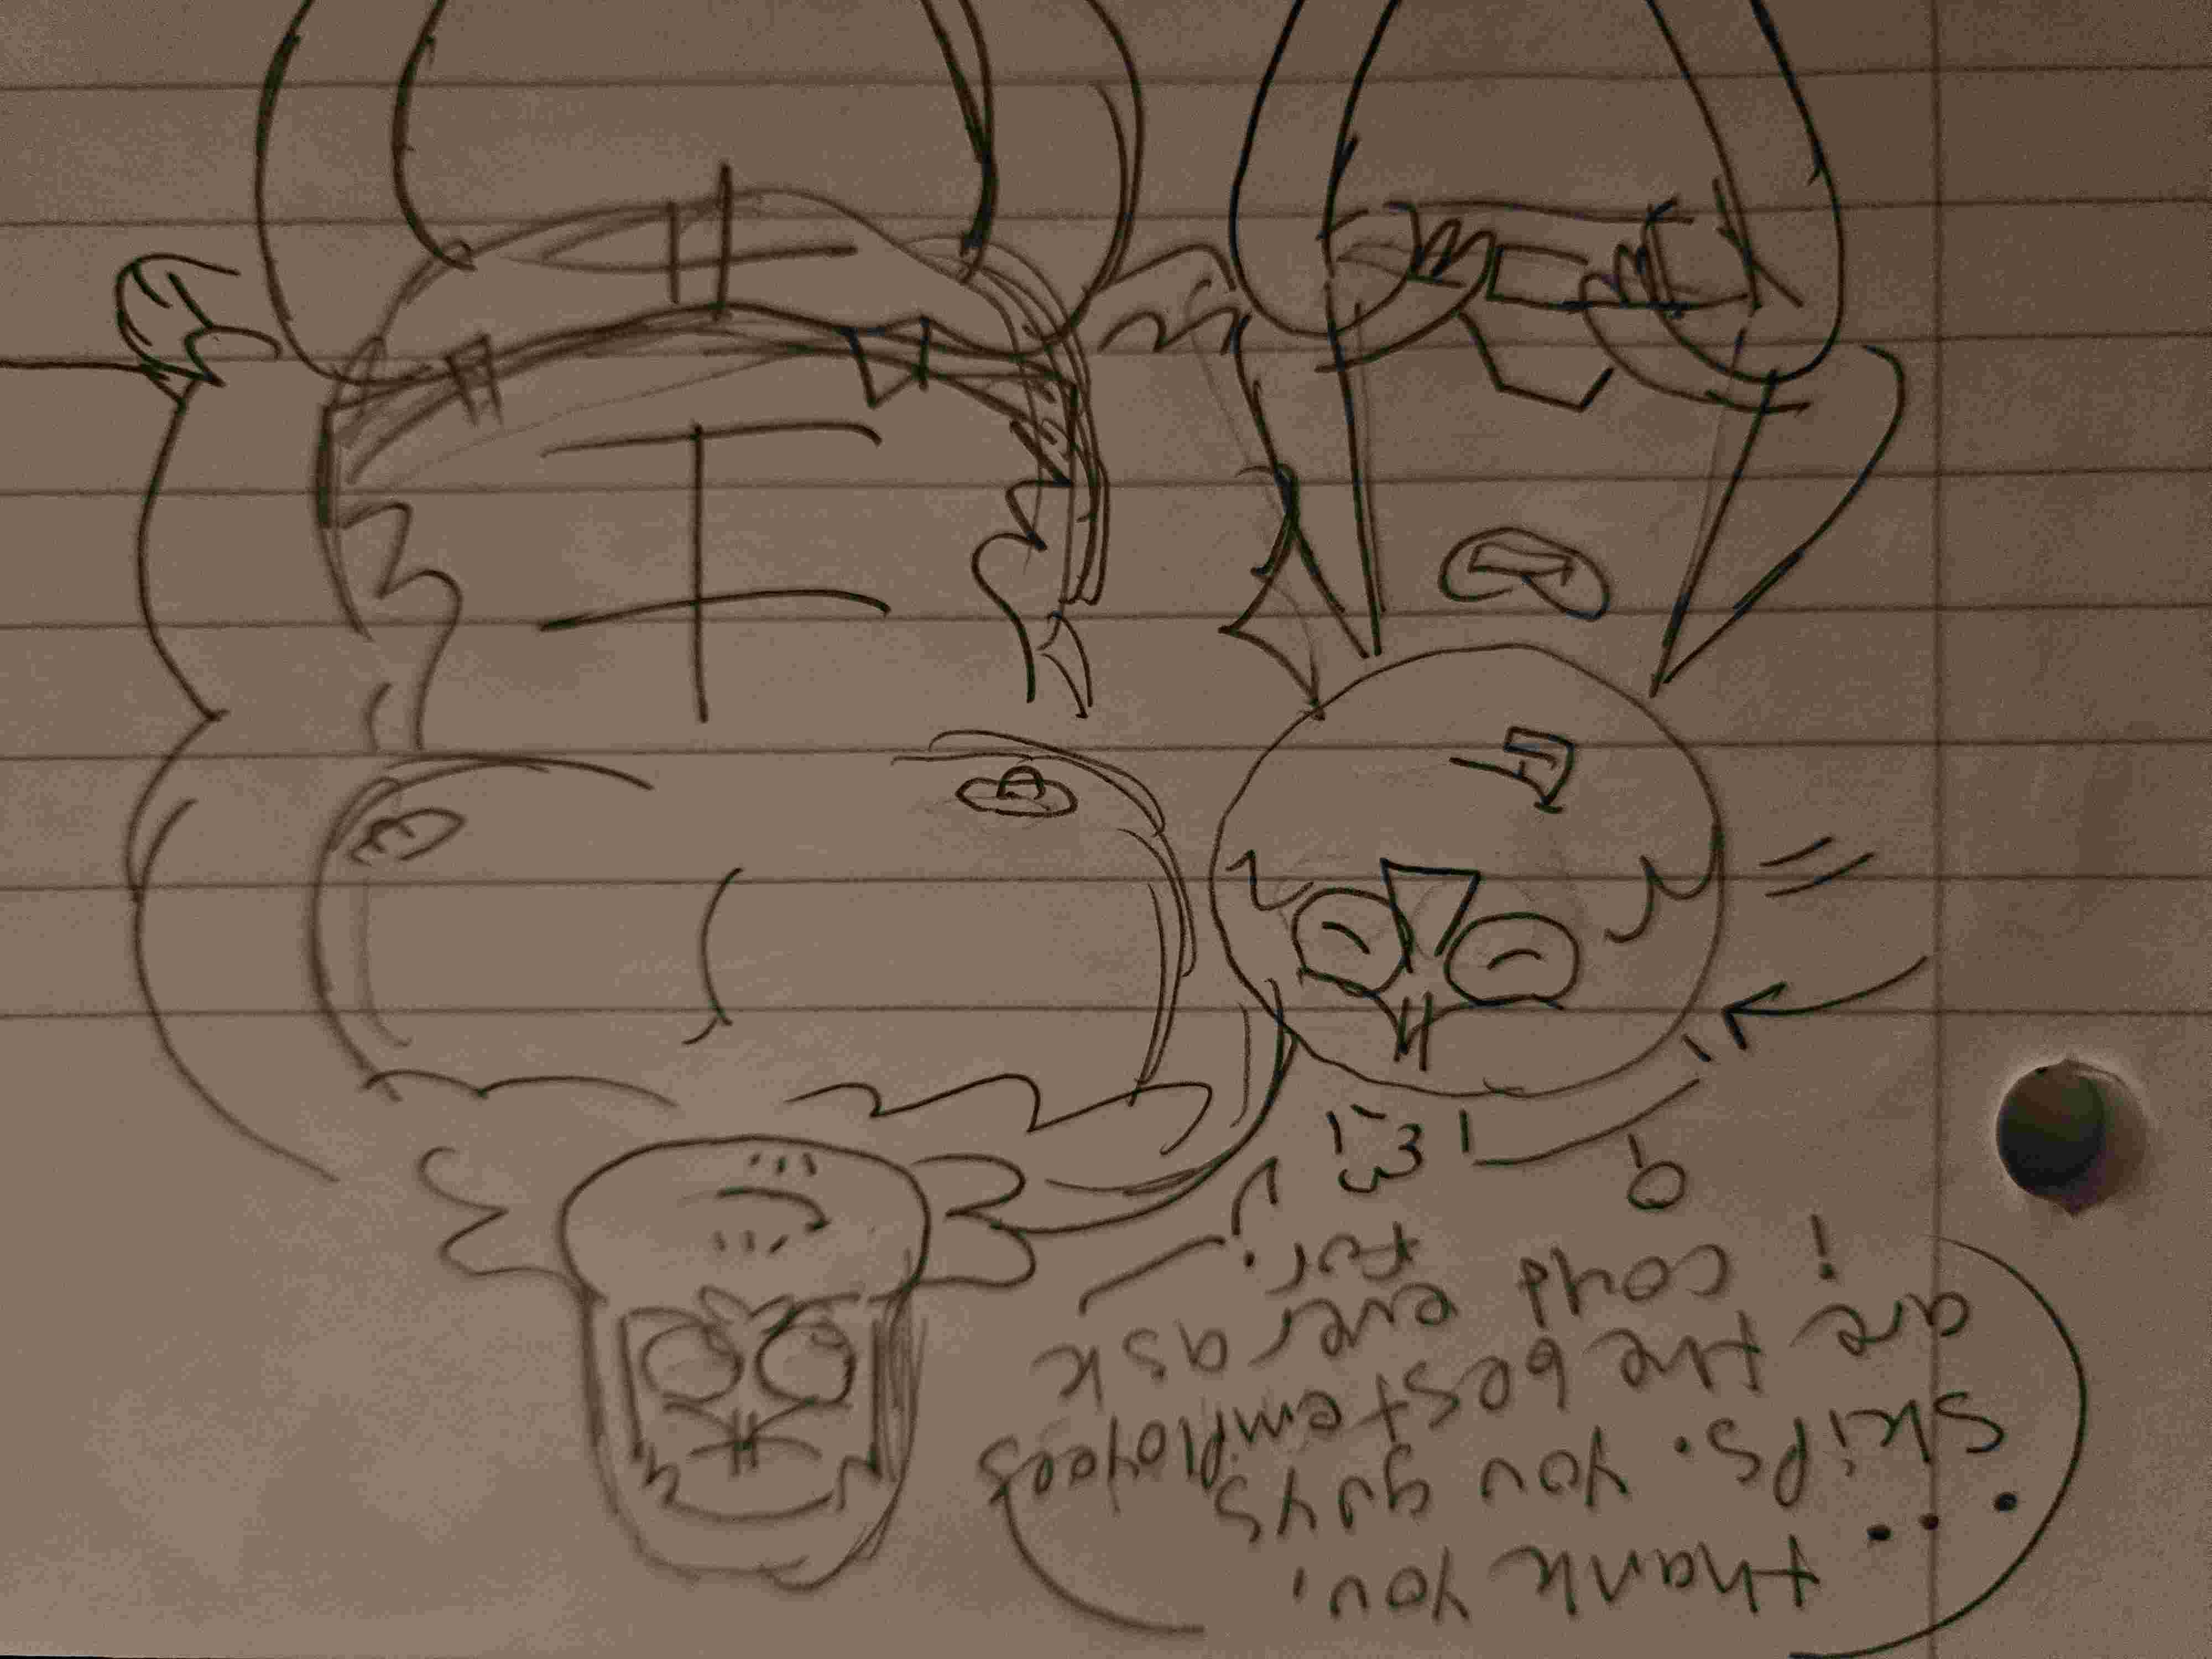 ... thank you,
skips. you guys
are the best employees
i could ever ask
for.